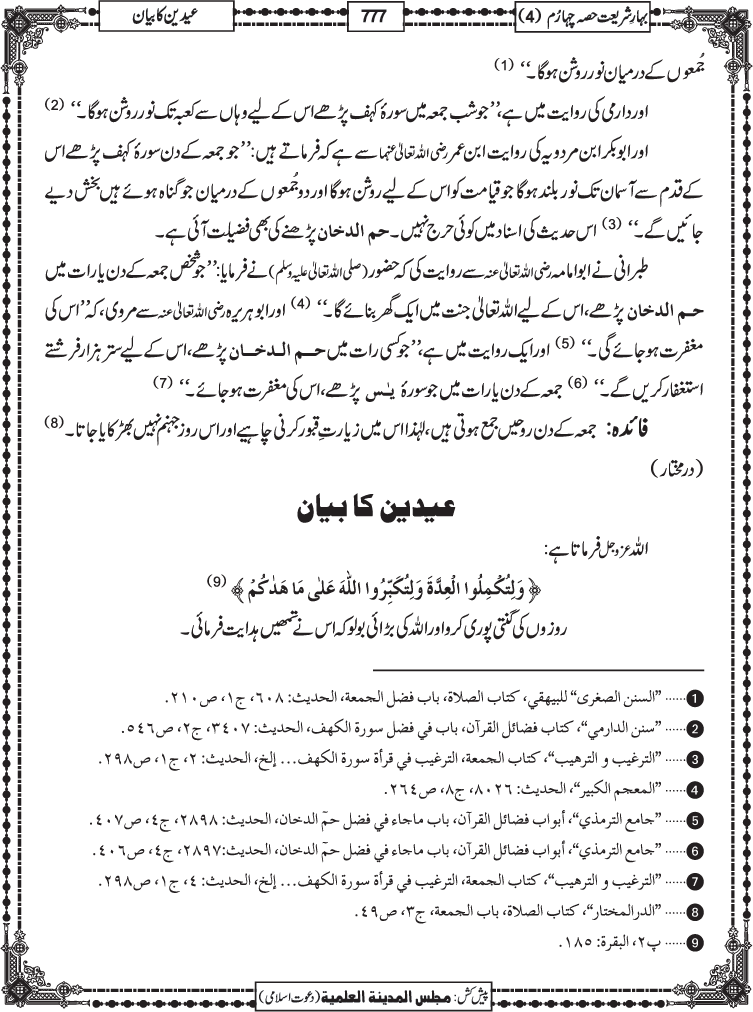 بہارِ شریعت حصہ چہارم (4)
777
عیدین کا بیان
جُمعوں کے درمیان نور روشن ہوگا۔‘‘ (1)
اور دارمی کی روایت میں ہے،’’جو شب جمعہ میں سورۂ کہف پڑھے اس کے لیے وہاں سے کعبہ تک نور روشن ہوگا۔‘‘ (2)
اور ابو بکر ابن مردویہ کی روایت ابن عمر رضی اللہ تعالیٰ عنہما سے ہے کہ فرماتے ہیں:’’جو جمعہ کے دن سورۂ کہف پڑھے اس
کے قدم سے آسمان تک نور بلند ہوگا جو قیامت کو اس کے لیے روشن ہوگا اور دو جُمعوں کے درمیان جو گناہ ہوئے ہیں بخش دیے
جائیں گے۔‘‘ (3) اس حدیث کی اسناد میں کوئی حرج نہیں۔ حم الدخان پڑھنے کی بھی فضیلت آئی ہے۔
طبرانی نے ابو امامہ رضی اللہ تعالیٰ عنہ سے روایت کی کہ حضور (صلی اللہ تعالیٰ علیہ وسلم) نے فرمایا:’’جو شخص جمعہ کے دن یا رات میں
حم الدخان پڑھے، اس کے لیے اللہ تعالیٰ جنت میں ایک گھر بنائے گا۔‘‘ (4) اور ابو ہریرہ رضی اللہ تعالیٰ عنہ سے مروی، کہ’’اس کی
مغفرت ہو جائے گی۔‘‘ (5) اور ایک روایت میں ہے،’’جو کسی رات میں حم الدخان پڑھے، اس کے لیے ستر ہزار فرشتے
استغفار کریں گے۔‘‘ (6) جمعہ کے دن یا رات میں جو سورۂ یٰس پڑھے، اس کی مغفرت ہو جائے۔‘‘ (7)
فائدہ: جمعہ کے دن روحیں جمع ہوتی ہیں، لہٰذا اس میں زیارتِ قبور کرنی چاہیے اور اس روز جہنم نہیں بھڑکایا جاتا۔ (8)
(درمختار)
عیدین کا بیان
اللہ عزوجل فرماتا ہے:
﴿ وَلِتُكْمِلُوا الْعِدَّةَ وَلِتُكَبِّرُوا اللّٰهَ عَلٰى مَا هَدٰىكُمْ ﴾ (9)
روزوں کی گنتی پوری کرو اور اللہ کی بڑائی بولو کہ اس نے تمھیں ہدایت فرمائی۔
1 ...... ”السنن الصغرى“ للبيهقي، كتاب الصلاة، باب فضل الجمعة، الحديث: ٦٠٨، ج١، ص٢١٠.
2 ...... ”سنن الدارمي“، كتاب فضائل القرآن، باب في فضل سورة الكهف، الحديث: ٣٤٠٧، ج٢، ص٥٤٦.
3 ...... ”الترغيب و الترهيب“، كتاب الجمعة، الترغيب في قرأة سورة الكهف... إلخ، الحديث: ٢، ج١، ص٢٩٨.
4 ...... ”المعجم الكبير“، الحديث: ٨٠٢٦، ج٨، ص٢٦٤.
5 ...... ”جامع الترمذي“، أبواب فضائل القرآن، باب ماجاء في فضل حمۤ الدخان، الحديث: ٢٨٩٨، ج٤، ص٤٠٧.
6 ...... ”جامع الترمذي“، أبواب فضائل القرآن، باب ماجاء في فضل حمۤ الدخان، الحديث:٢٨٩٧، ج٤، ص٤٠٦.
7 ...... ”الترغيب و الترهيب“، كتاب الجمعة، الترغيب في قرأة سورة الكهف... إلخ، الحديث: ٤، ج١، ص٢٩٨.
8 ...... ”الدرالمختار“، كتاب الصلاة، باب الجمعة، ج٣، ص٤٩.
9 ...... پ٢، البقرة: ١٨٥.
پیش کش: مجلس المدینۃ العلمیۃ (دعوت اسلامی)